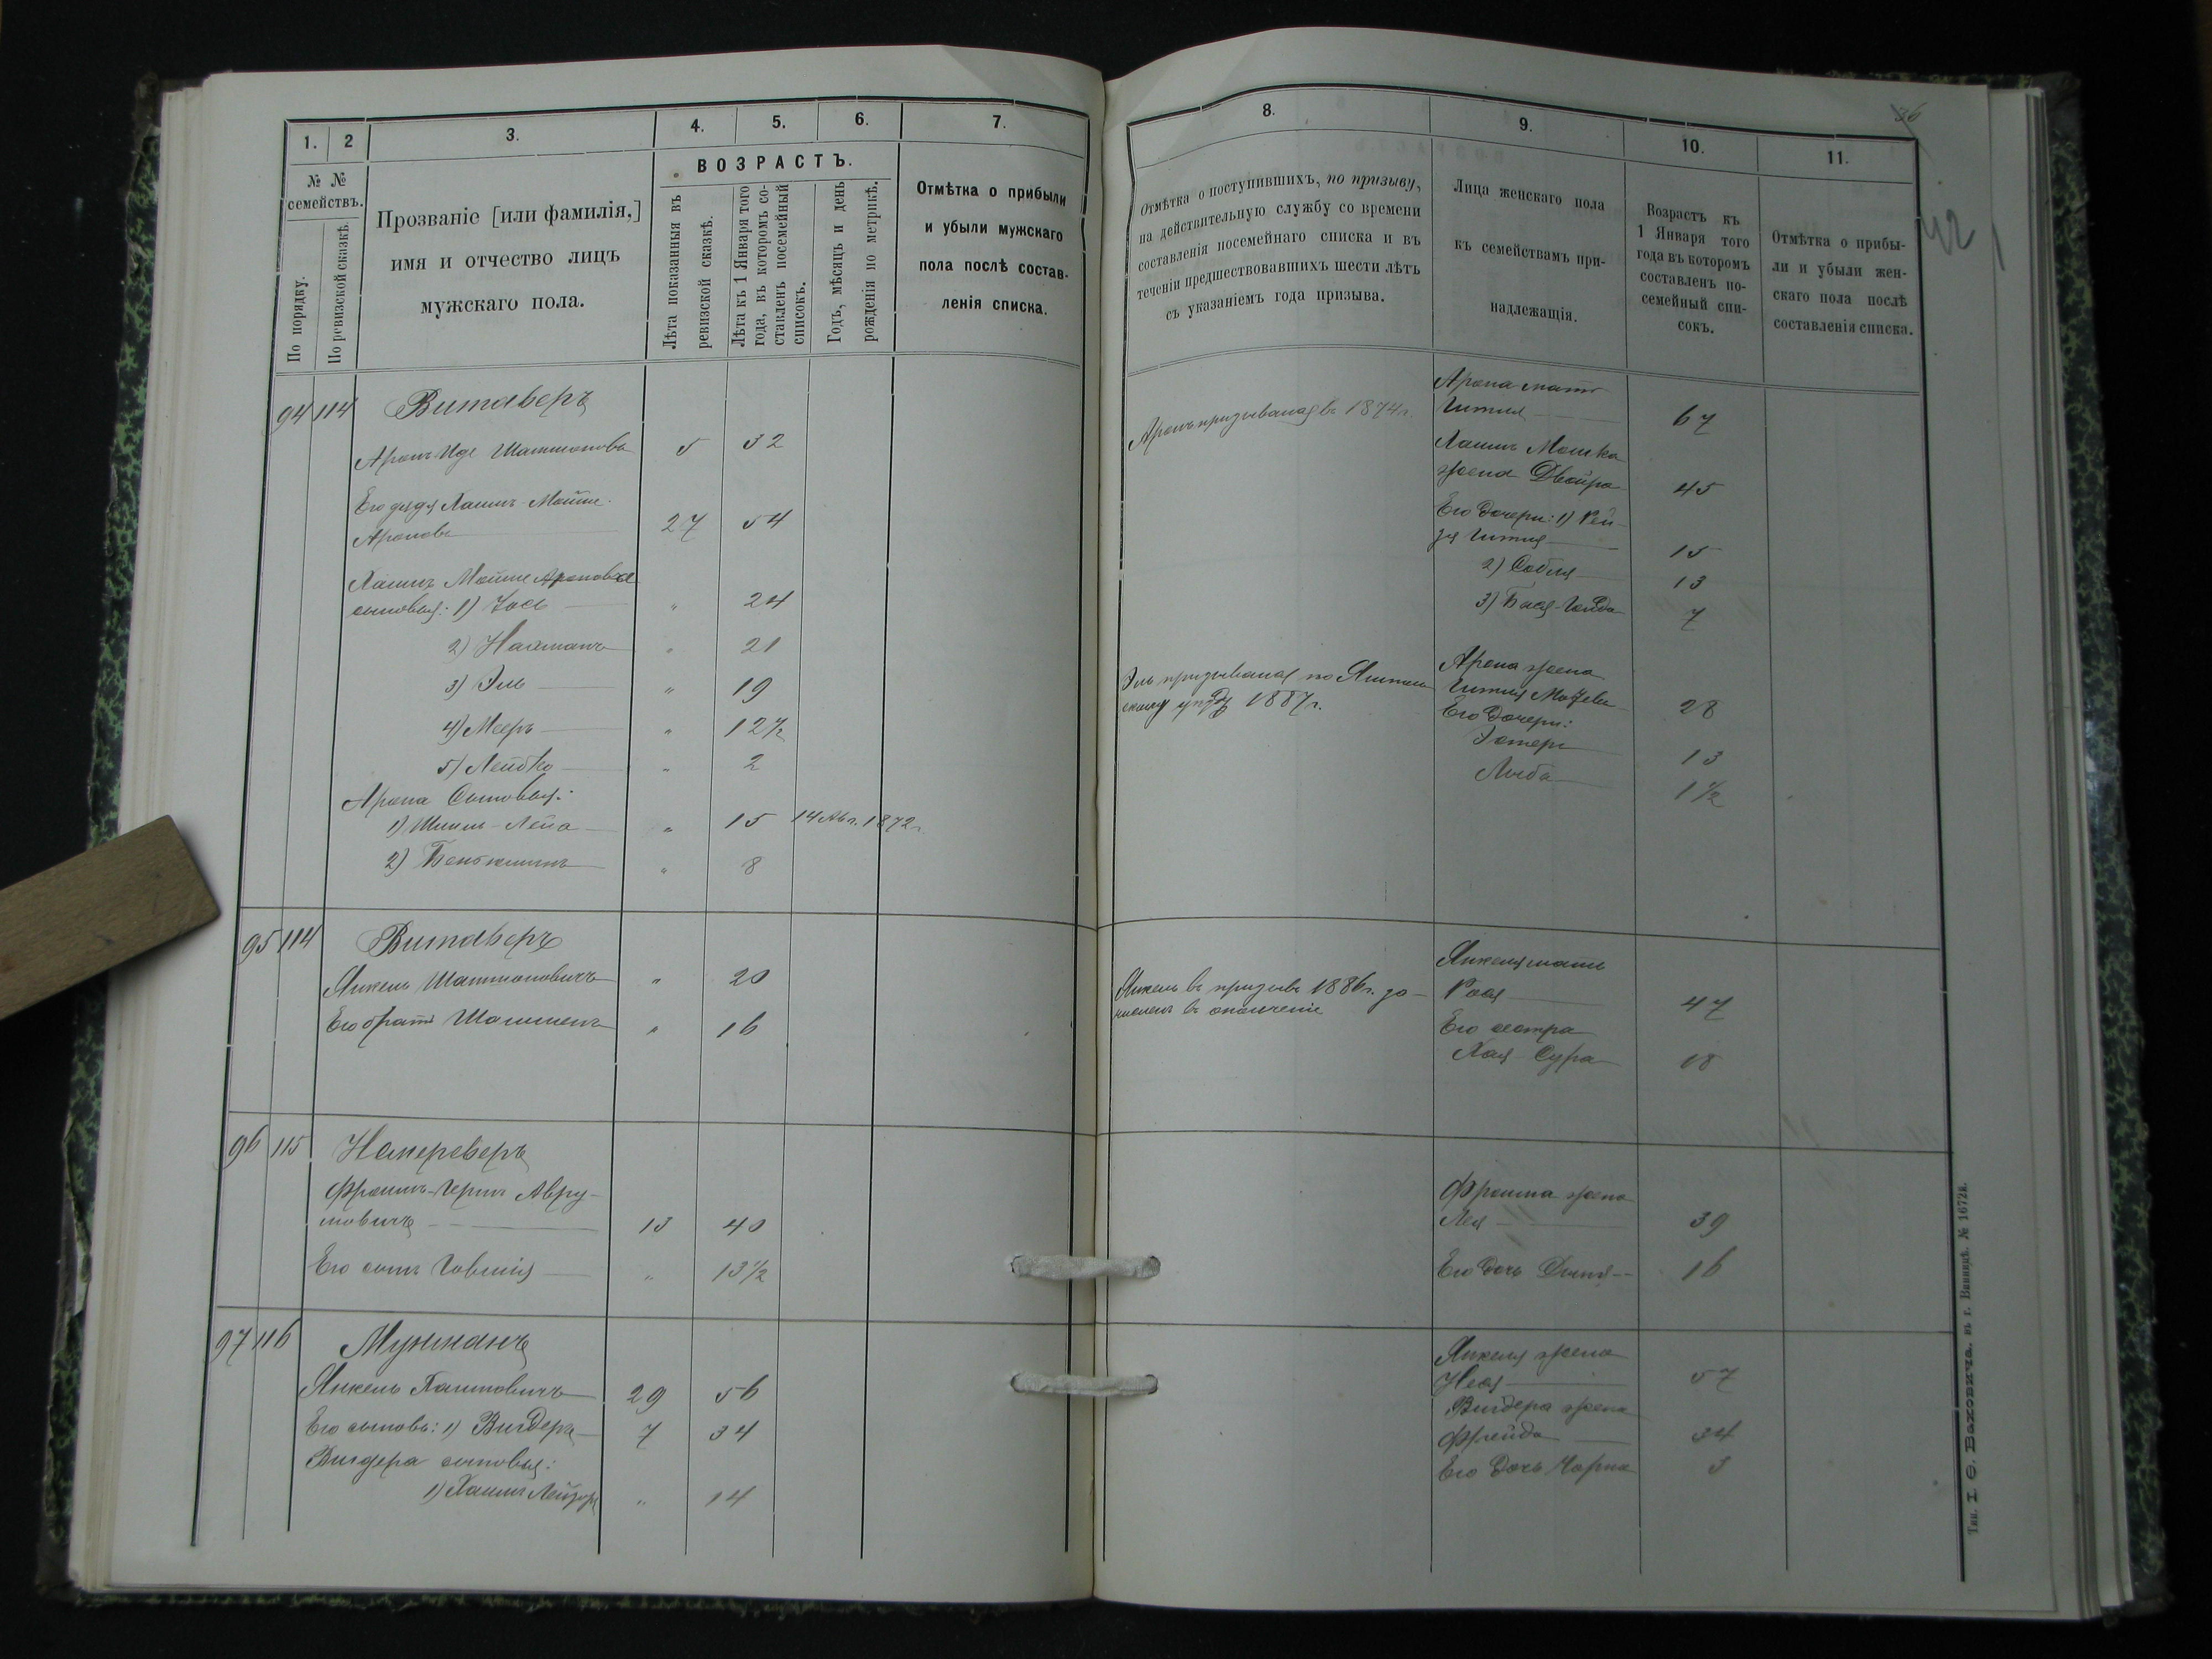 1.
2
3.
4.
5.
6.
7.
№ №
семействъ.
По порядку.
По ревизской сказкѣ.
Прозваніе [или фамилія,]
имя и отчество лицъ
мужскаго пола.
ВОЗРАСТЪ.
Лѣта показанныя въ
ревизской сказкѣ.
Лѣта къ 1 Января того
года, въ которомъ со-
ставленъ посемейный
списокъ.
Годъ, мѣсяцъ и день
рожденія по метрикѣ.
Отмѣтка о прибыли
и убыли мужскаго
пола послѣ состав-
ленія списка.
94 114 Витаверъ
Аронъ Иде 5 32
Его дядя Хаимъ-Мошке
Ароновъ 27 54
Хаимъ Мошке Ароновъ
сыновья: 1) Іось " 24
2) Нахманъ " 21
3) Эль " 19
4) Мееръ " 12½
5) Лейбко " 2
Арона Сыновья:
1) Шмиль-Лейба " 15 14 Авг. 1872 г.
2) " 8
95 114 Витаверъ
Янкель " 20
Его братъ " 16
96 115
Фроимъ-Гершъ Авру-
мовичъ 13 40
Его сынъ " 13½
97 116
Янкель Хаимовичъ 29 56
Его сыновья: 1) Вигдеръ 7 34
Вигдера сыновья:
1) Хаимъ Лейзоръ " 14
8.
9.
10.
11.
36
42
Отмѣтка о поступившихъ, по призыву,
на действительную службу со времени
составленія посемейнаго списка и въ
теченіи предшествовавшихъ шести лѣтъ
съ указаніемъ года призыва.
Лица женскаго пола
къ семействамъ при-
надлежащія.
Возрастъ къ
1 Января того
года въ которомъ
составленъ по-
семейный спи-
сокъ.
Отмѣтка о прибы-
ли и убыли жен-
скаго пола послѣ
составленія списка.
Аронъ призывался въ 1874 г.
Арона мать
Гитля 67
Хаимъ Мошка
жена Двойра 45
Его дочери: 1) Рей-
зя Гитля 15
2) Собля 13
3) Бася-Голда 7
Эль призывался по
1887 г.
Арона жена
Гитля 28
Его дочери:
Эстеръ 13
Люба 1½
Янкель въ призывъ 1886 г. за-
численъ въ ополченіе
Янкеля мать
Рося 47
Его сестра
Хая Сура 18
Фроима жена
Лея 39
Его дочь 16
Янкеля жена
57
Вигдера жена
Фрейда 34
Его дочь Чарна 3
Тип. І. Ө. Баховича. въ г. Винницѣ. № 1672я.